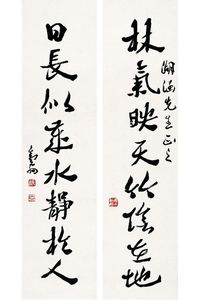 湖海先生正之
林氣映天竹陰在地
日長似歲水靜於人